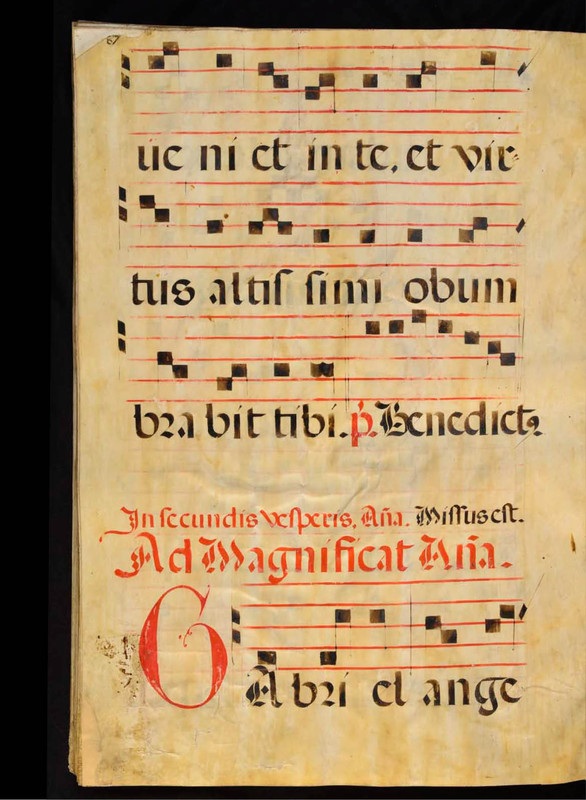 67
ue ni et in te, et vir
tus altiſ ſimi obum
bra bit tibi. p̄. Benedictꝰ
In ſecundis veſperis, Aña. Miſſus eſt.
Ad Magnificat Aña.
GAbri el ange